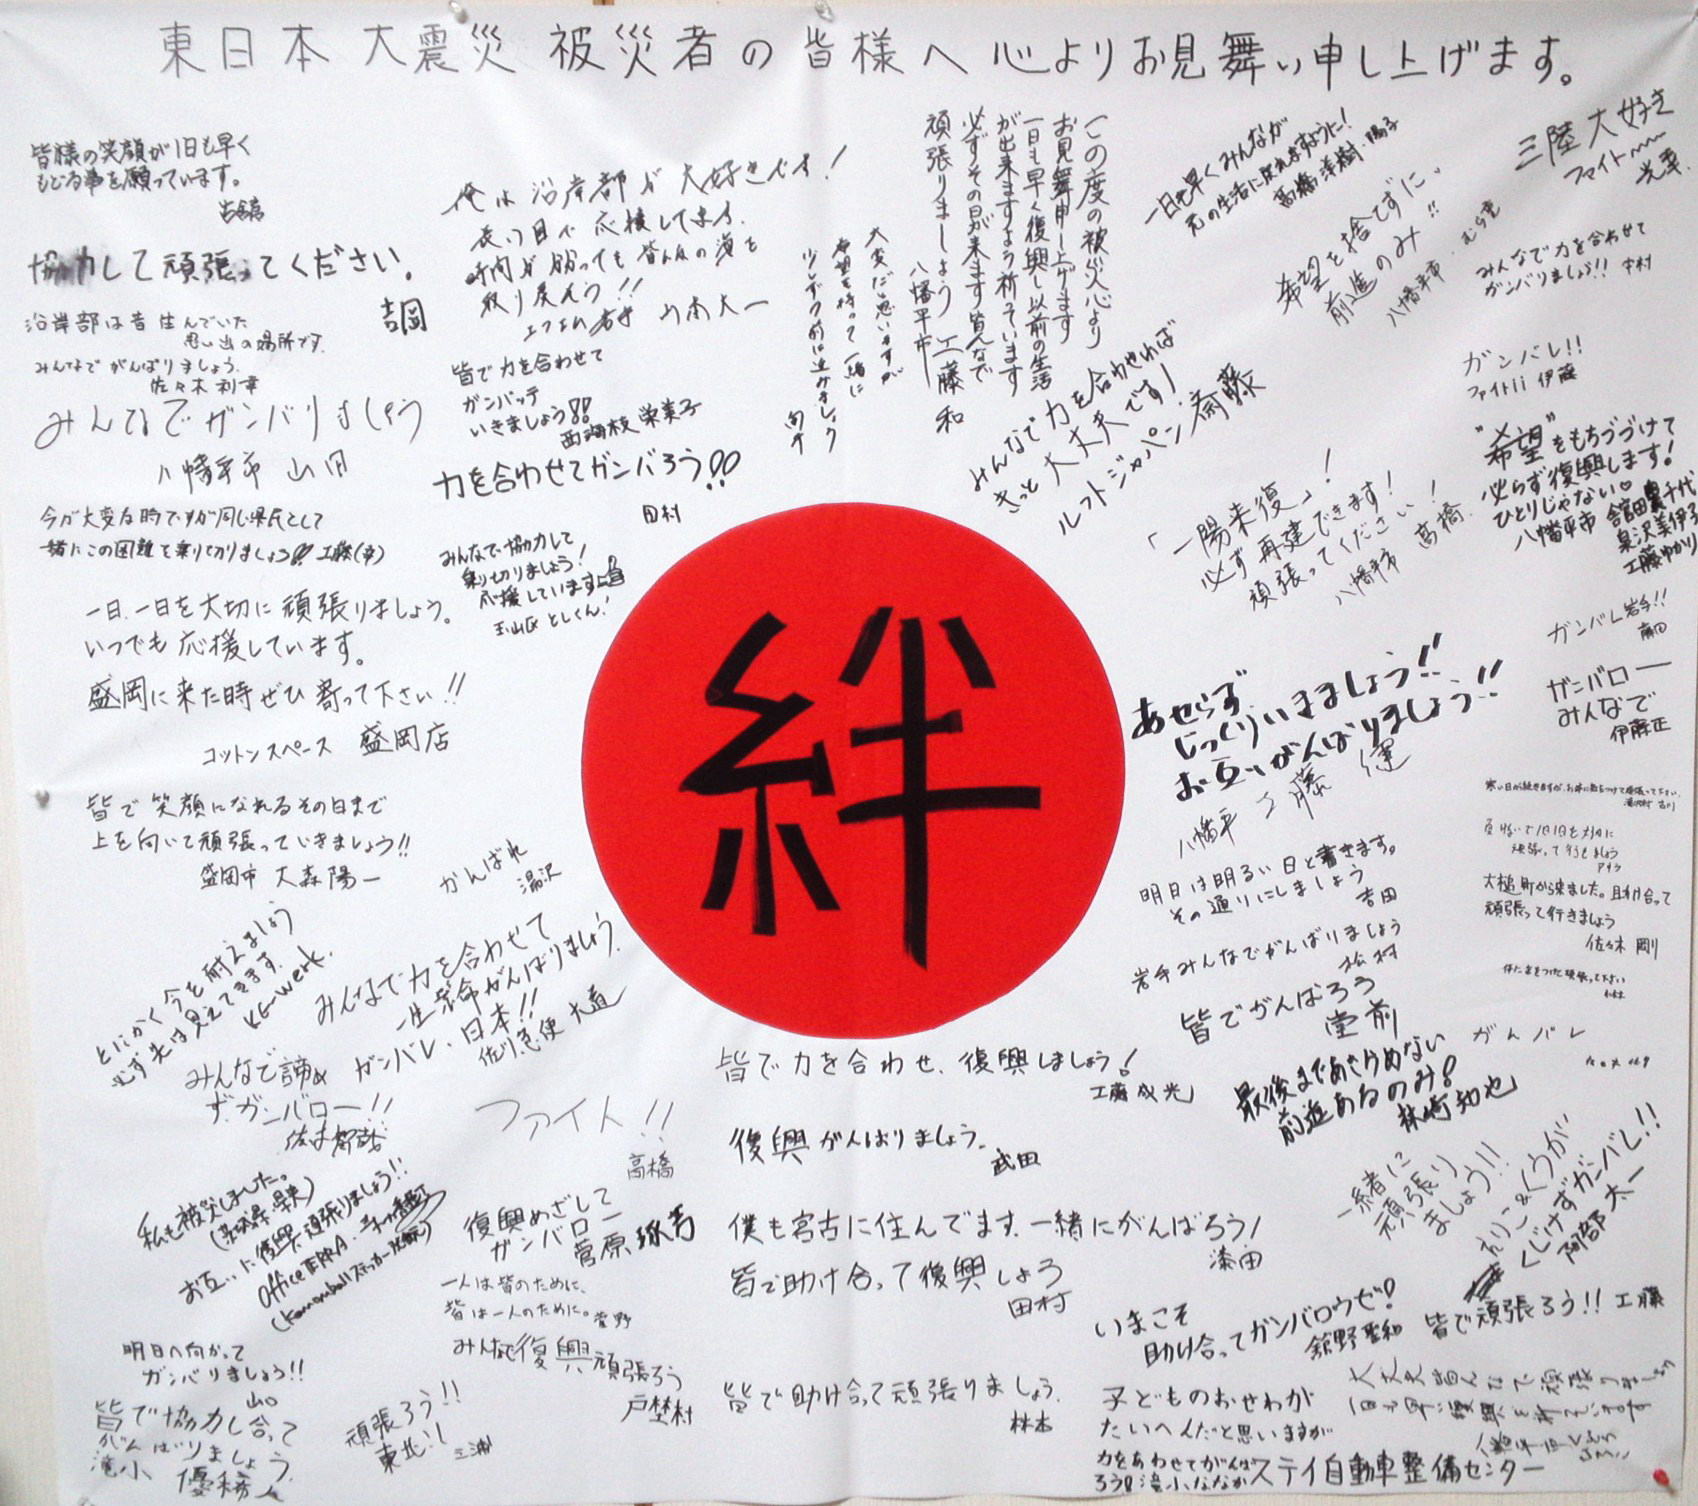 東日本大震災 被災者の皆様へ 心よりお見舞い申し上げます。
皆様の笑顔が1日も早く
もどる事を願っています。
協力して頑張ってください。
吉岡
沿岸部は昔住んでいた
思い出の場所です。
みんなでがんばりましょう。
佐々木利幸
みんなでガンバりましょう
八幡平市 山田
今が大変な時ですが同じ県民として
一緒にこの困難を乗り切りましょう!! 工藤(幸)
一日、一日を大切に頑張りましょう。
いつでも応援しています。
盛岡に来た時ぜひ寄って下さい!!
コットンスペース 盛岡店
皆で笑顔になれるその日まで
上を向いて頑張っていきましょう!!
盛岡市 大森陽一
俺は沿岸部が大好きです!
長い目で応援してます。
時間が掛っても皆んなの海を
取り戻そう!!
エフエム岩手 山本大一
皆で力を合わせて
ガンバッテ
いきましょう!!
西海枝 栄美子
力を合わせてガンバろう!!
田村
みんなで協力して
乗り切りましょう!
応援しています
玉山区 としくん!
この度の被災心より
お見舞申し上げます
一日も早く復興し以前の生活
が出来ますよう祈っています
必ずその日が来ます皆んなで
頑張りましょう
八幡平市 工藤 和
大変だと思いますが
希望を持って一緒に
少しずつ前に進みましょう
一日も早くみんなが
元の生活に戻れますように!
高橋洋樹・陽子
三陸大好き
ファイト〜〜
希望を捨てずに、
前進のみ!!
八幡平市
みんなで力を合わせて
ガンバりましょう!! 中村
ガンバレ!!
ファイト!! 伊藤
みんなで力を合わせれば
きっと大丈夫です!
ルフトジャパン 斎藤
"希望"をもちつづけて
必らず復興します!
ひとりじゃない♡
八幡平市
工藤ゆかり
「一陽来復」!
必ず再建できます!
頑張ってください!
八幡平市 高橋
ガンバレ岩手!!
ガンバロー
みんなで
伊藤正
絆
あせらず
じっくりいきましょう!!
お互いがんばりましょう!!
八幡平 工藤 健
明日は明るい日と書きます。
その通りにしましょう
吉田
岩手みんなでがんばりましょう
松村
皆でがんばろう
堂前
大槌町から来ました。助け合って
頑張って行きましょう
佐々木 剛
がんばれ
湯沢
とにかく今を耐えましょう
必ず先は見えてきます。
KG-werk.
みんなで力を合わせて
一生懸命がんばりましょう。
ガンバレ、日本!!
佐川急便 大道
みんなで諦め
ず。ガンバロー!!
ファイト!!
高橋
皆で力を合わせ、復興しましょう!
工藤成光
復興がんばりましょう。
武田
最後まであきらめない
前進あるのみ!
林崎知也
ガンバレ
私も被災しました。
(茨城県・県央)
お互いに復興頑張りましょう!!
復興めざして
ガンバロー
菅原
一人は皆のために、
皆は一人のために。菅野
みんなで復興頑張ろう
戸埜村
僕も宮古に住んでます。一緒にがんばろう!
漆田
皆で助け合って復興しよう
田村
一緒に
頑張り
ましょう!!
くじけずガンバレ!!
阿部 太一
いまこそ
助け合ってガンバロウゼ!
舘野聖和
皆で頑張ろう!! 工藤
明日へ向かって
ガンバりましょう!!
山口
皆で協力し合って
がんばりましょう。
滝小 優希
頑張ろう!!
東北!!
三浦
皆で助け合って頑張りましょう。
林本
子どものおせわが
たいへんだと思いますが
力をあわせてがんば
ろう! 滝小 ななか
ステイ自動車整備センター
大丈夫皆んなで頑張りましょう
一日も早い復興を祈っています